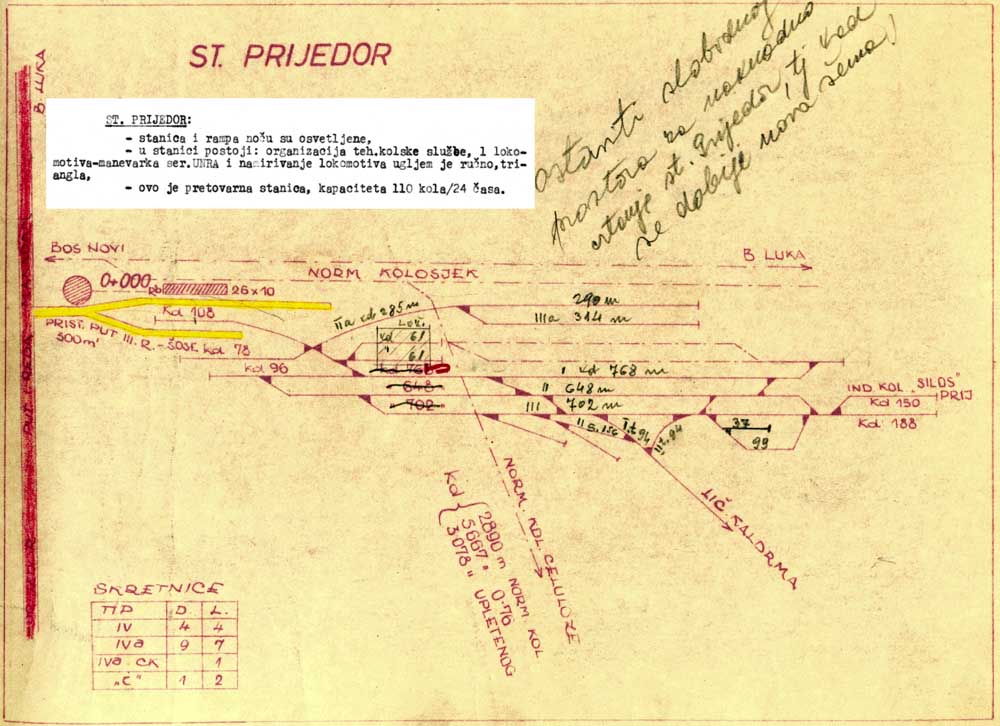 ST. PRIJEDOR
B LUKA
ostaviti slobodnog
prostora za naknadno
crtanje st. Prijedor, tj kad
se dobije nova šema!
ST. PRIJEDOR:
- stanica i rampa noću su osvetljene,
- u stanici postoji: organizacija teh.kolske službe, 1 loko-
motiva-manevarka ser.UNRA i namirivanje lokomotiva ugljem je ručno,tri-
angla,
- ovo je pretovarna stanica, kapaciteta 110 kola/24 časa.
BOS NOVI
B LUKA
NORM KOLOSJEK
0+000
Rb
26x10
Kd 108
PRIST. PUT III. R. - ŠOSE
300m'
Kd 78
IIa kd 285 m
290 m
IIIa 314 m
Lož.
kd 61
" 61
Kd 96
kd 768
I kd 768 m
648
II 648 m
702
III 702 m
IND. KOL "SILOS"
PRIJ
Kd 150
Kd 188
II s. 156
I t. 94
II t. 94
37
99
LIČ KALDRMA
NORM. KOL CELULOZE
Kd
2890 m NORM KOL
5667 " 0.76
3078 " UPLETENOG
SKRETNICE
TIP D. L.
IV 4 4
IVa 9 7
IVa CK 1
"C" 1 2